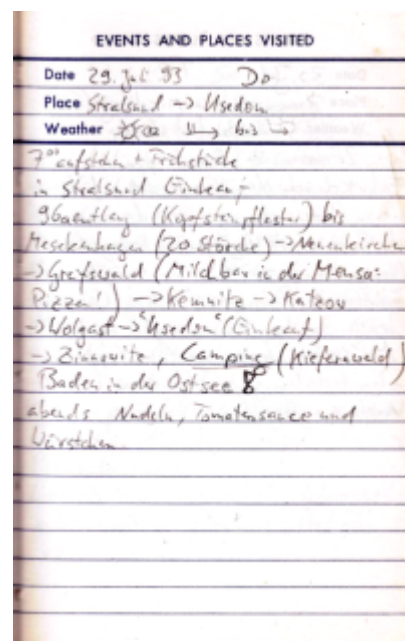 EVENTS AND PLACES VISITED
Date 29. Jul 93 Do
Place Stralsund -> Usedom
Weather bis
7°° aufstehen + Frühstück
in Stralsund Einkauf
96 entlang (Kopfsteinpflaster) bis
Mesekenhagen (20 Störche) -> Neuenkirchen
-> Greifswald (Milchbar in der Mensa:
Pizza!) -> Kemnitz -> Katzow
-> Wolgast -> "Usedom" (Einkauf)
-> Zinnowitz, Camping (Kiefernwald)
Baden in der Ostsee
abends Nudeln, Tomatensauce und
Würstchen